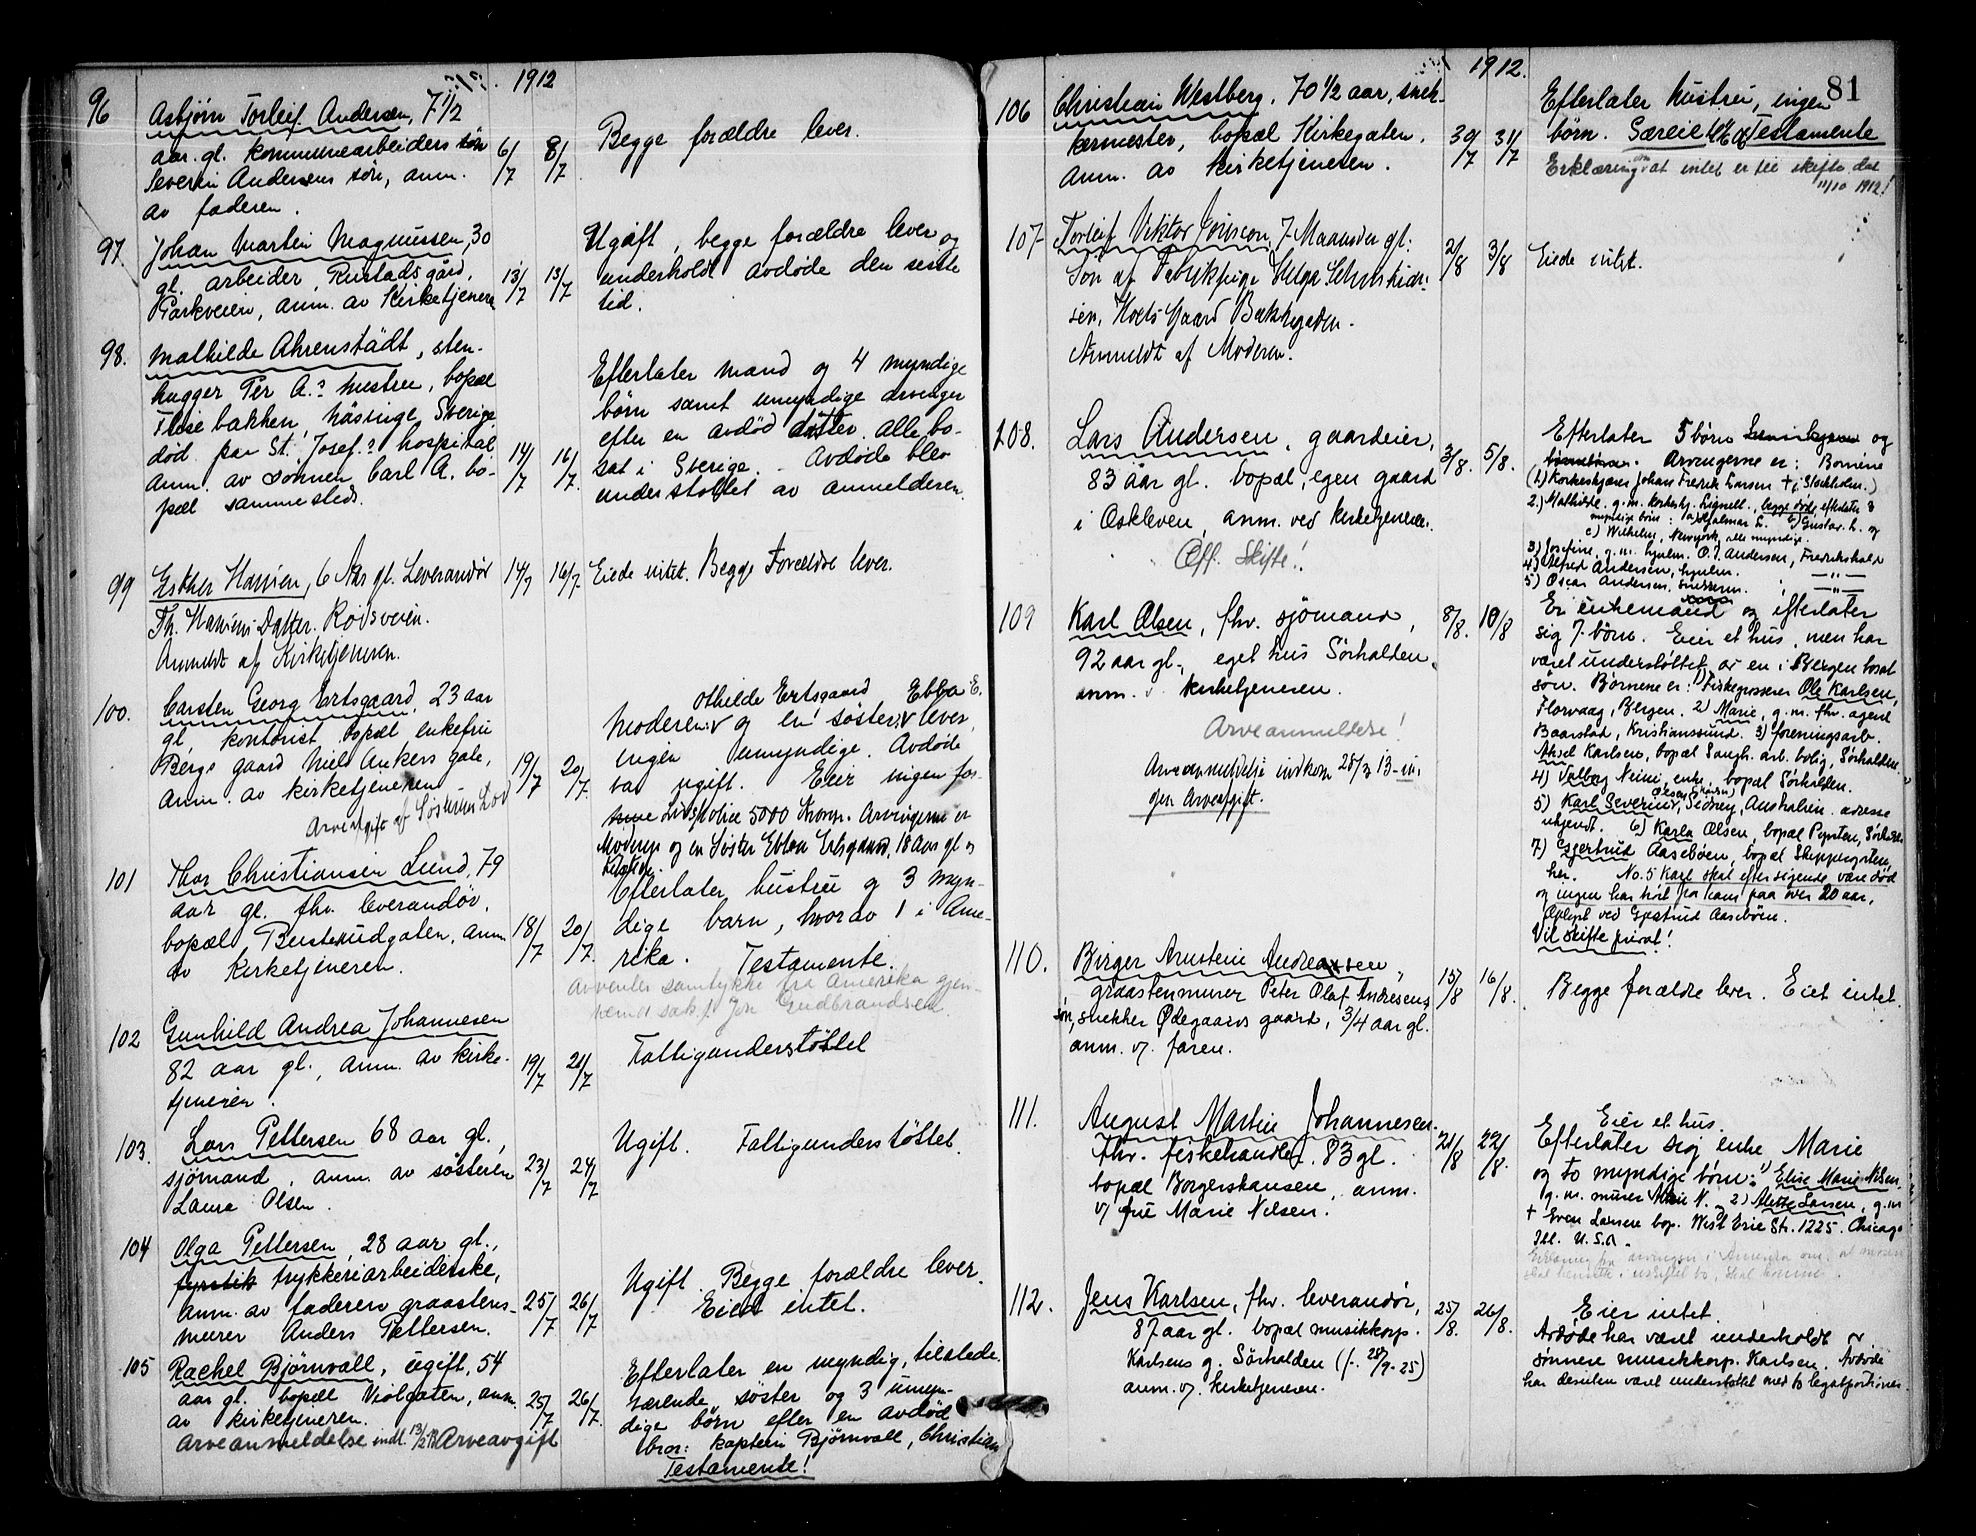 1912
96 Asbjørn Torleif Andersen, 7 1/2
aar. gl. kommunearbeiders søn
Severin Andersens søn, anm.
av faderen.
6/7 8/7
Begge forældre lever.
97. Johan Martin Magnussen, 30
gl. arbeider, Rustads gård,
Parkveien, anm. av Kirketjener
13/7 13/7
Ugift, begge forældre lever og
underholdt avdøde den siste
tid.
98. Mathilde Ahrenstädt, sten-
hugger Per A.s hustru, bopæl
bakken, Sverige
død paa St. Josefs hospital
anm. av sønnen Carl A. bo-
pæl sammesteds.
14/7 16/7
Efterlater mand og 4 myndige
børn samt umyndige arvinger
efter en avdød datter, alle bo-
sat i Sverige. - Avdøde blev
understøttet av anmelderen.
99 Esther Hansen, 6 Aar gl. Leverandør
Th. Hansens Datter. Rødsveien.
Anmeldt af Kirketjeneren.
14/7 16/7.
Eiede intet. Begge Forældre lever.
100. Carsten Georg Ertsgaard, 23 aar
gl. kontorist, bopæl enkefru
Bergs gaard Niels Ankers gate,
anm. av kirketjeneren
Arveafgift af Søsteren Lov
19/7 20/7.
Othilde Ertsgaard Ebba E.
Moderen v og en søster v lever,
ingen umyndige. Avdøde
var ugift. Eier ingen for-
mue Livspolice 5000 Kroner. Arvingerne er
Moderen og en Søster Ebba Ertsgaard, 18 Aar gl og
101 Thor Christiansen Lund, 79
aar gl. fhv. leverandør,
bopæl Busterudgaten, anm
av kirketjeneren.
18/7 20/7.
Efterlater hustru og 3 myn-
dige barn, hvorav 1 i Ame-
rika. Testamente.
Avventer samtykke fra Amerika gjen-
Gudbrandsen
102 Gunhild Andrea Johannesen
82 aar gl., anm. av kirke-
tjeneren.
19/7 21/7
Fattigunderstøttet
103. Lars Pettersen 68 aar gl.,
sjömand, anm. av søsteren
Laura Olsen.
23/7 24/7
Ugift. Fattigunderstøttet.
104 Olga Pettersen, 28 aar gl.,
fyrstik trykkeriarbeiderske,
anm. av faderen graastens-
murer Anders Pettersen.
25/7 26/7
Ugift. Begge forældre lever.
Eiet intet.
105 Rachel Bjørnvall, ugift, 54
aar gl. bopæl Violgaten, anm.
av kirketjeneren.
Arveanmeldelse indl. 13/2 13 Arveavgift
25/7 26/7.
Efterlater en myndig, tilstede
værende, søster og 3 umyn-
dige børn efter en avdød
bror: kaptein Bjørnvall, Christian
Testamente!
1912.
81
106 Christian Westberg, 70 1/2 aar, snek-
kermester, bopæl Kirkegaten.
anm. av kirketjeneren.
30/7 31/7
Efterlater hustru, ingen
børn. Særeie og Testamente
Erklæring om at intet er til skifte dat
11/10 1912!
107 Torleif Viktor 7 Maaneder gl.
Søn af Fabrikpige Helga
sen, Hoels Gaard Bakkegaden.
Anmeldt af Moderen.
2/8 3/8
Eiede intet.
108. Lars Andersen, gaardeier,
83 aar gl. bopæl, egen gaard
i Oskleven, anm. ved kirketjeneren.
Off. Skifte!
3/8. 5/8.
Efterlater 5 børn og
børnebørn. Arvingerne er: Børnene
(1) Korkeskjærer Johan Fredrik Larsen † i Stockholm.)
2.) Mathilde, g.m. korkeskj. Lignell, begge døde, efterlater 3
myndige børn: a) Hjalmar L. b) Gustav L. og
c) Wilhelm, Newyork, alle myndige.
3) Josefine, g.m. O. J. Andersen, Fredrikshald
4) Alfred Andersen, —"—
5) Oscar Andersen, —"—
109 Karl Olsen, fhv. sjömand,
92 aar gl., eget hus Sørhalden,
anm. v. kirketjeneren.
Arveanmeldelse!
Arveanmeldelse indkom 28/3 13
gen Arveafgift.
8/8. 10/8
Er enkemand og efterlater
sig 7 børn. Eier et hus, men har
været understøttet av en i Bergen bosat
søn. Børnene er: 1) Fiskegrosserer Ole Karlsen,
Florvaag, Bergen. 2) Marie, g.m. fhv. agent
Baarstad, Kristianssund. 3) foreningsarb.
Aksel Karlsen, bopæl Saugb. arb. bolig, Sørhalden
4) Valborg enke, bopæl Sørhalden.
5) Karl Severin, Sidney, Australien, adresse
ukjendt. 6) Karla Olsen, bopæl
7) Gjertrud Aasebøen, bopæl Skippergaten,
her. No. 5 Karl skal eftersigende være død
og ingen har hørt fra ham paa over 20 aar,
Oplyst ved Gjertrud Aasebøen.
Vil skifte privat!
110. Birger Arnstein Andreassen,
graastenmurer Peter Olaf Andresens
søn, snekker Ødegaards gaard, 3/4 aar gl.
anm. v. faren.
15/8 16/8.
Begge forældre lever. Eiet intet.
111. August Martin Johannesen
Fhv. fiskehandler, 83 gl.
bopæl Borgerskansen, anm.
v/ fru Marie Nilsen.
21/8 22/8.
Eier et hus.
Efterlater sig enke Marie
og to myndige børn: 1) Elise Marie Nilsen,
g.m. murer N. 2) Alette Larsen, g.m
† Even Larsen bop. West Erie Str. 1225. Chicago
Ill. U.S.A.
Erklæring fra arvingen i Amerika om at moren
skal hensitte i uskiftet bo, skal komme.
112. Jens Karlsen, fhv. leverandør,
87 aar gl. bopæl musikkorp.
Karlsens g. Sørhalden (f. 28/9-25)
anm. v. kirketjeneren.
25/8. 26/8.
Eier intet.
Avdøde har været underholdt av
sønnen musikkorp. Karlsen. Avdøde
har desuten været understøttet med to legatportioner.